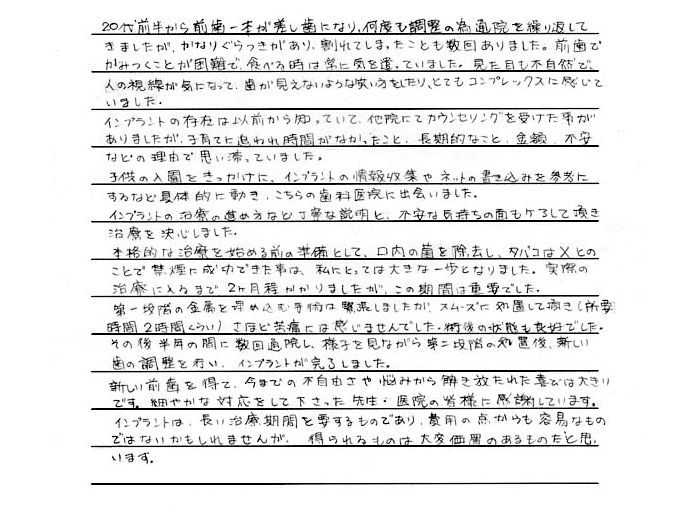 20代前半から前歯一本が差し歯になり、何度も調整の為通院を繰り返して
きましたが、かなりぐらつきがあり、割れてしまったことも数回ありました。前歯で
かみつくことが困難で、食べる時は常に気を遣っていました。見た目も不自然で、
人の視線が気になって、歯が見えないような笑い方をしたり、とてもコンプレックスに感じて
いました。
インプラントの存在は以前から知っていて、他院にてカウンセリングを受けた事が
ありましたが、子育てに追われ時間がなかったこと、長期的なこと、金額、不安
などの理由で思い滞っていました。
子供の入園をきっかけに、インプラントの情報収集やネットの書き込みを参考に
するなど具体的に動き、こちらの歯科医院に出会いました。
インプラントの治療の進め方など丁寧な説明と、不安な気持ちの面もケアして頂き
治療を決心しました。
本格的な治療を始める前の準備として、口内の菌を除去し、タバコは×との
ことで禁煙に成功できた事は、私にとっては大きな一歩となりました。実際の
治療に入るまで2ヶ月程かかりましたが、この期間は重要でした。
第一段階の金属を埋め込む手術は緊張しましたが、スムーズに処置して頂き(所要
時間2時間くらい)さほど苦痛には感じませんでした。術後の状態も良好でした。
その後半年の間に数回通院し、様子を見ながら第二段階の処置後、新しい
歯の調整を行い、インプラントが完了しました。
新しい前歯を得て、今までの不自由さや悩みから解き放たれた喜びは大きい
です。細やかな対応をして下さった先生・医院の皆様に感謝しています。
インプラントは、長い治療期間を要するものであり、費用の点からも容易なもの
ではないかもしれませんが、得られるものは大変価値のあるものだと思
います。